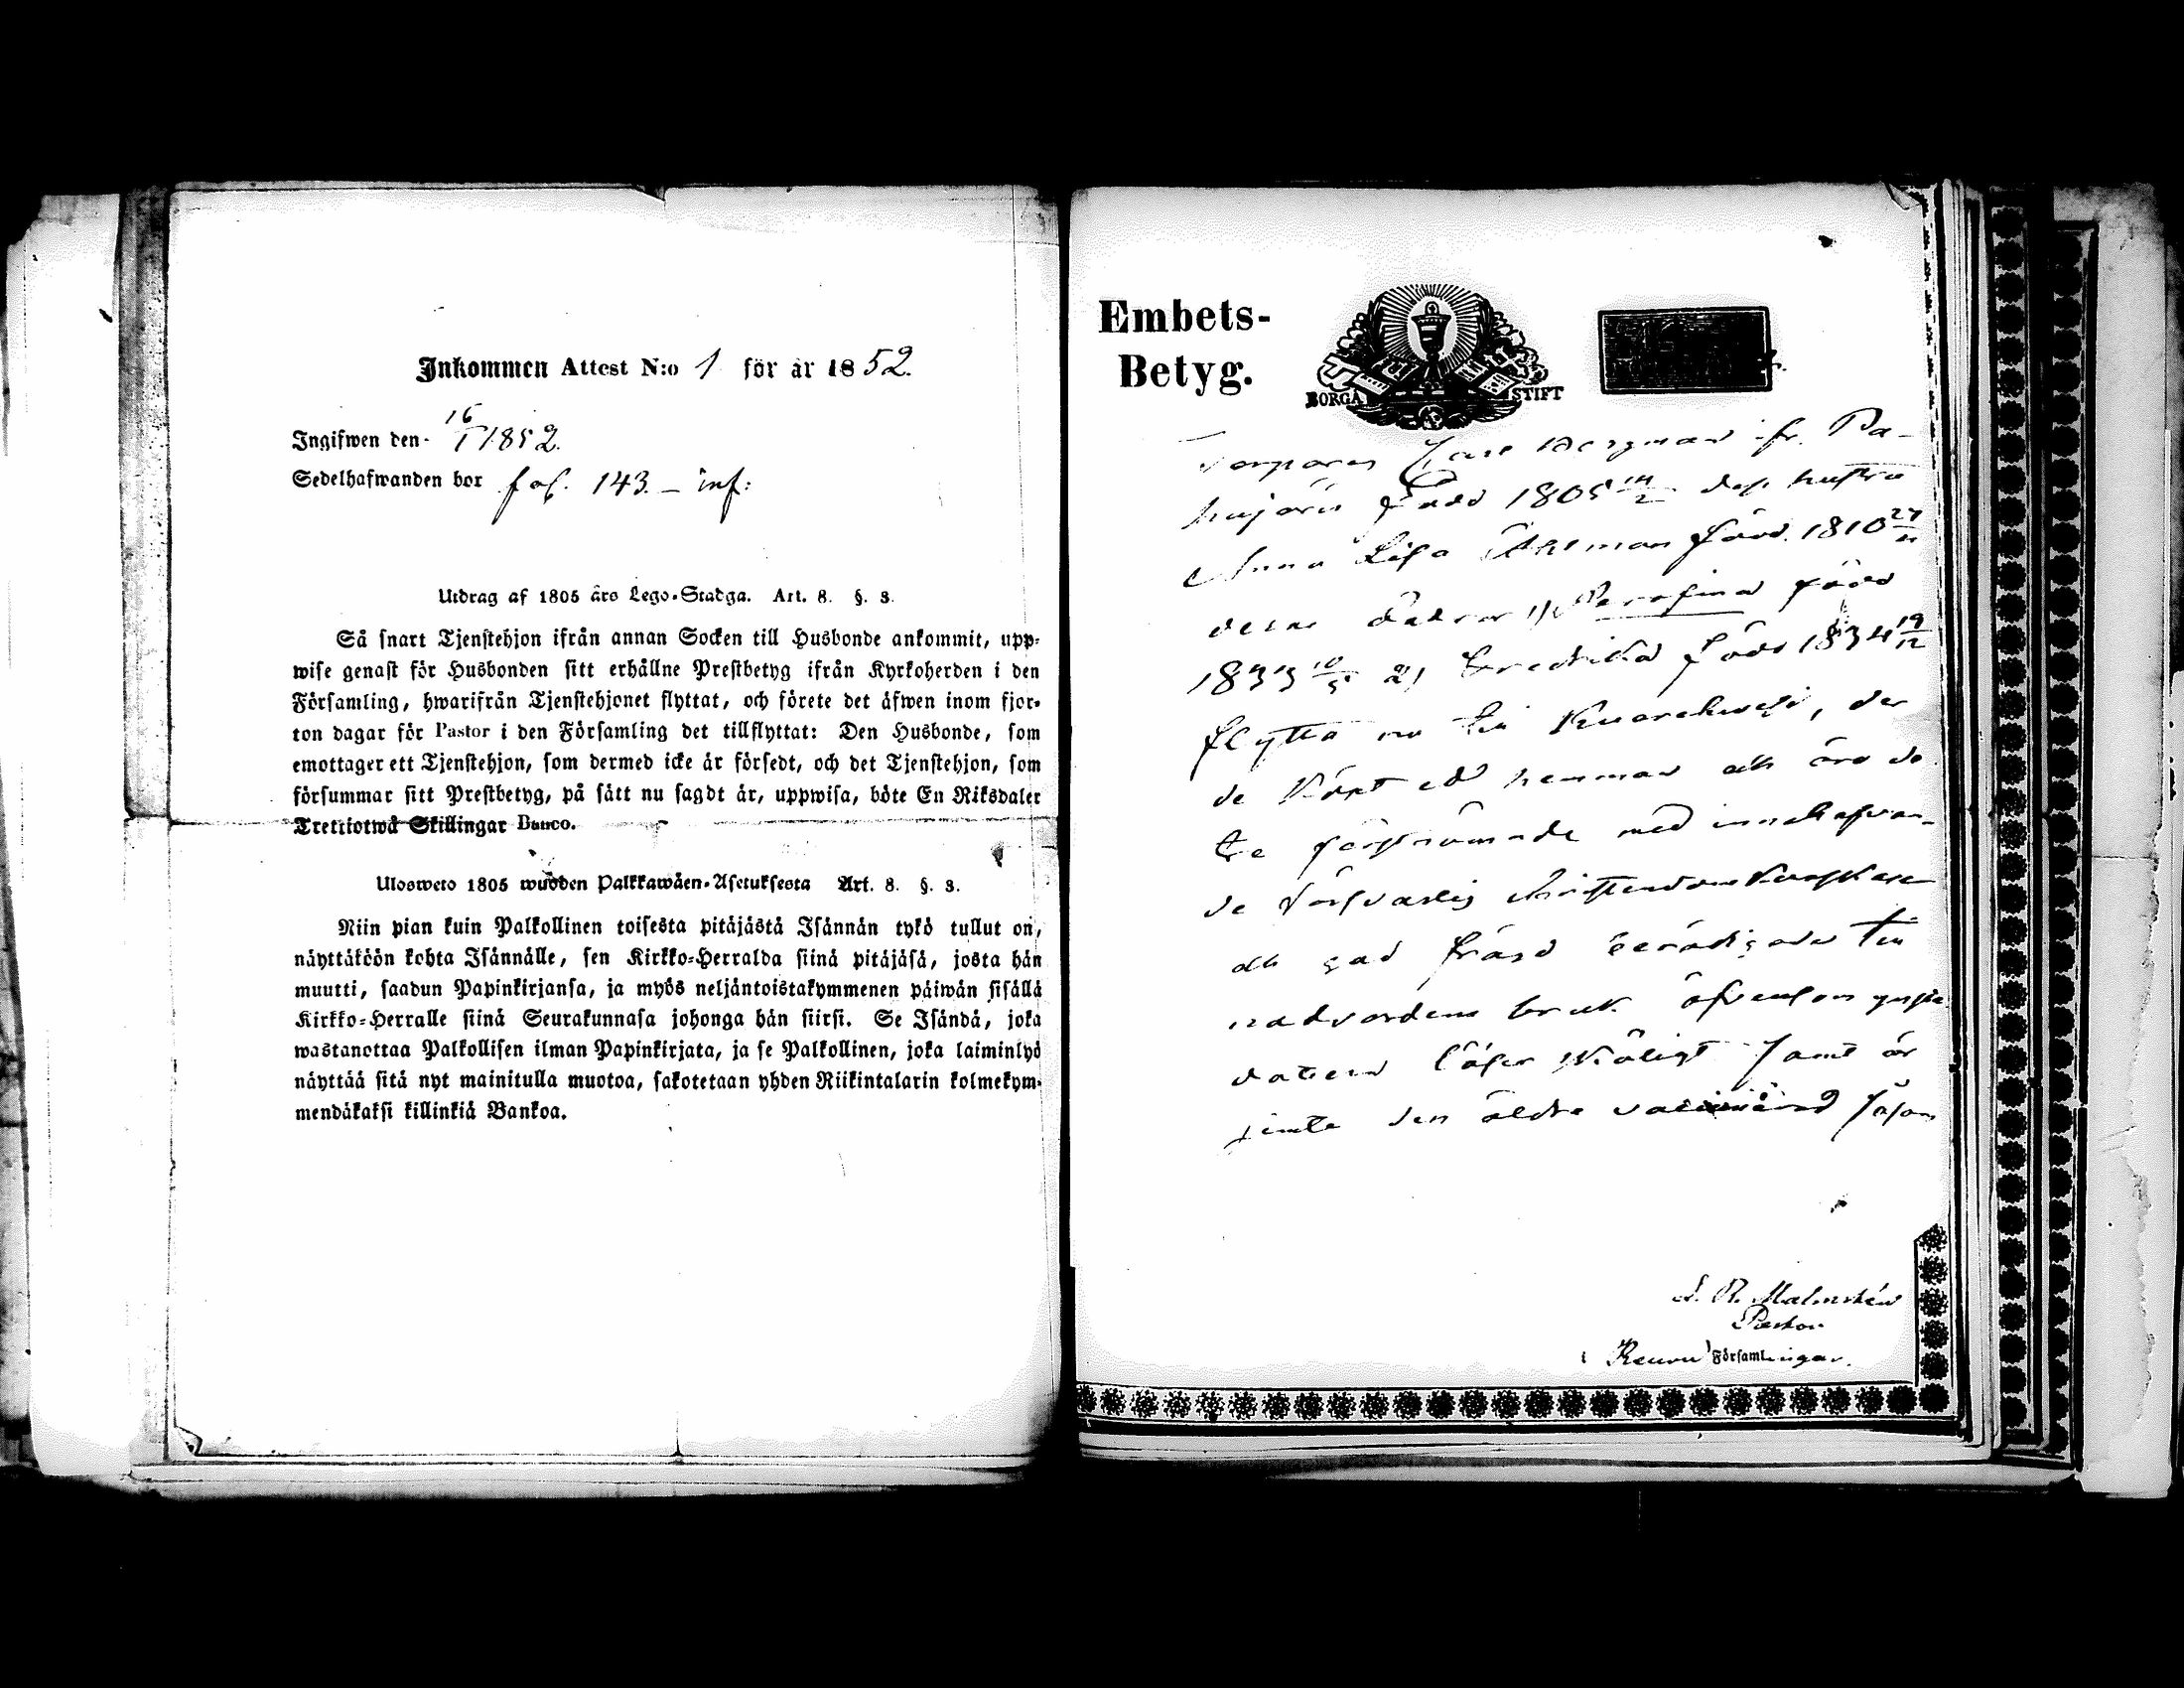 Inkommen Attest N:o 1 för år 1852.
Ingifwen den 16/1 1852.
Sedelhafwanden bor fol. 143. – inf:
Utdrag af 1805 års Lego-Stadga. Art. 8. §. 3.
Så snart Tjenstehjon ifrån annan Socken till Husbonde ankommit, upp-
wise genast för Husbonden sitt erhållne Prestbetyg ifrån Kyrkoherden i den
Församling, hwarifrån Tjenstehjonet flyttat, och förete det äfwen inom fjor-
ton dagar för Pastor i den Församling det tillflyttat: Den Husbonde, som
emottager ett Tjenstehjon, som dermed icke är försedt, och det Tjenstehjon, som
försummar sitt Prestbetyg, på sätt nu sagdt är, uppwisa, böte En Riksdaler
Trettiotwå Skillingar Banco.
Ulosweto 1805 wuoden Palkkawäen-Asetuksesta Art. 8. §. 3.
Niin pian kuin Palkollinen toisesta pitäjästä Isännän tykö tullut on,
näyttäköön kohta Isännälle, sen Kirkko-Herralda siinä pitäjäsä, josta hän
muutti, saadun Papinkirjansa, ja myös neljäntoistakymmenen päiwän sisällä
Kirkko-Herralle siinä Seurakunnasa johonga hän siirsi. Se Isändä, joka
wastanottaa Palkollisen ilman Papinkirjata, ja se Palkollinen, joka laiminlyö
näyttää sitä nyt mainitulla muotoa, sakotetaan yhden Riikintalarin kolmekym-
mendäkaksi killinkiä Bankoa.
Embets-
Betyg.
BORGÅ STIFT
Torparen Carl Bergman ifr. Pa-
hujärvi född 1805 14/2 dess hustru
Anna Lisa Åhlman född 1810
deras döttrar 1) Serafina född
1833 10/5 2) Fredrika född 1834 19/12
flytta nu till, der
de köpt ett hemman och äro de
tre förstnämnde med innehafvan-
de försvarlig christendoms kunskaper
och god fräjd berättigade till
nadvardens bruk äfvensom yngsta
dottern läser skäligt samt är
jemte den äldre vaccinerad såsom
Malmstén
Pastor
i Keuru Församlingar.